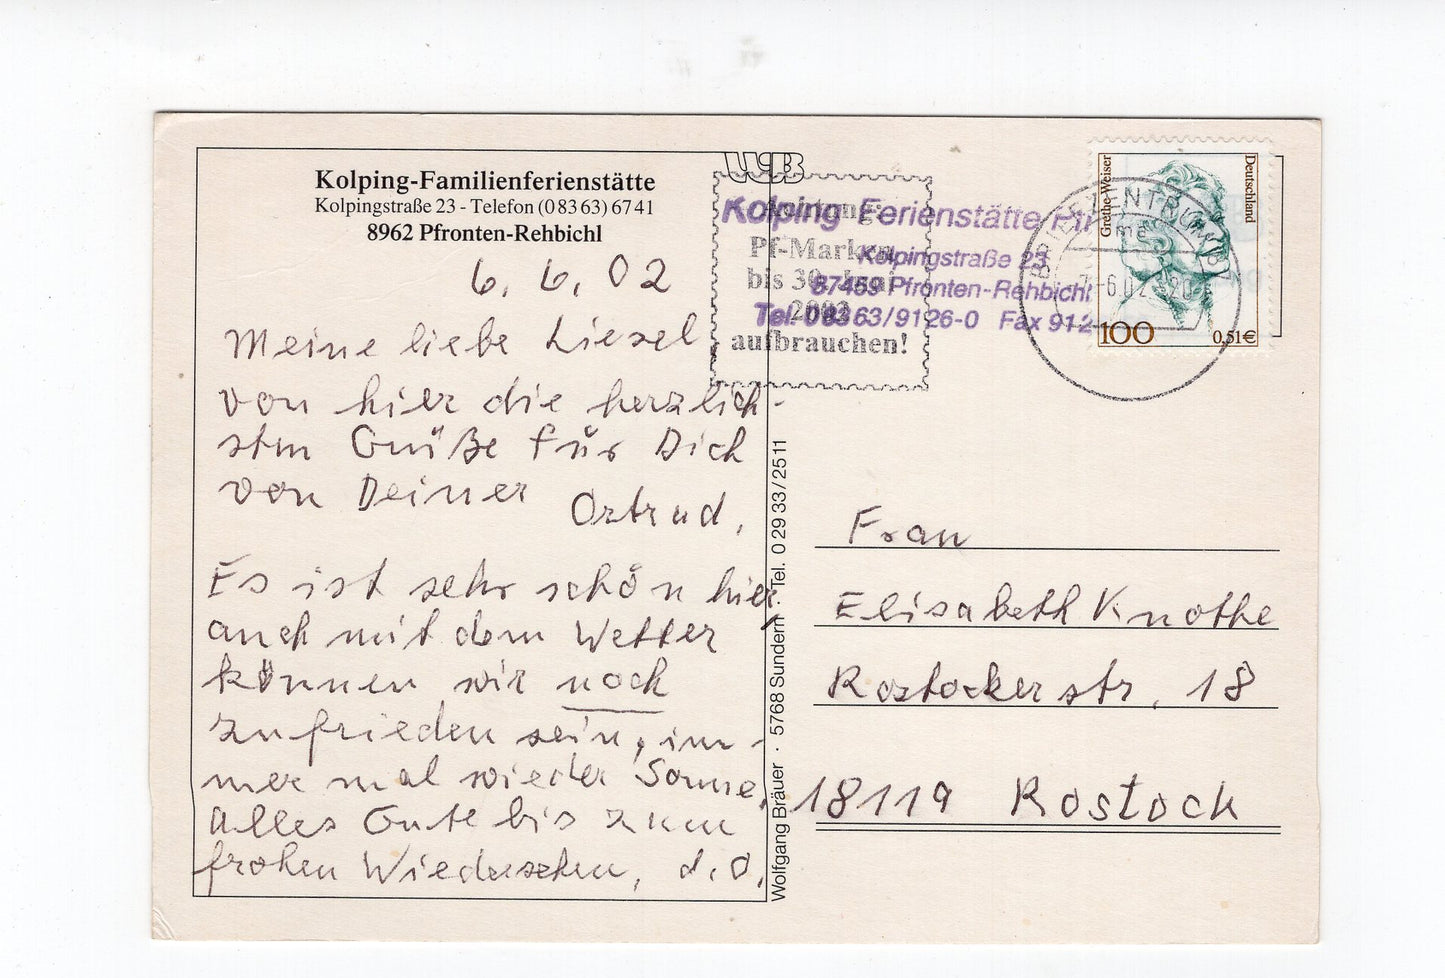 Kolping-Familienferienstätte
Kolpingstraße 23 - Telefon (0 83 63) 67 41
8962 Pfronten-Rehbichl
6. 6. 02
Meine liebe Liesel,
von hier die herzlich-
sten Grüße für Dich
von Deiner Ortrud.
Es ist sehr schön hier,
auch mit dem Wetter
können wir noch
zufrieden sein, im-
mer mal wieder Sonne.
Alles Gute bis zum
frohen Wiedersehen, d. O.
WB
Achtung:
Pf-Marken
bis 30. Juni
2002
aufbrauchen!
Kolping Ferienstätte Pfr
Kolpingstraße 23
87459 Pfronten-Rehbichl
Tel. 0 83 63/91 26-0 Fax 912
BRIEFZENTRUM
me
-6.02-20
Grethe Weiser
Deutschland
100
0,51€
Wolfgang Bräuer · 5768 Sundern · Tel. 0 29 33/25 11
Frau
Elisabeth Knothe
Rostocker str. 18
18119 Rostock